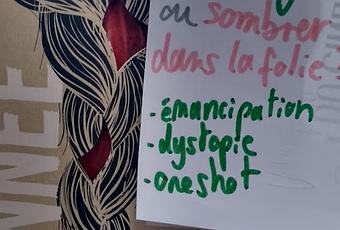 ou sombrer
dans la folie ?
-émancipation
-dystopie
-oneshot
NNEE